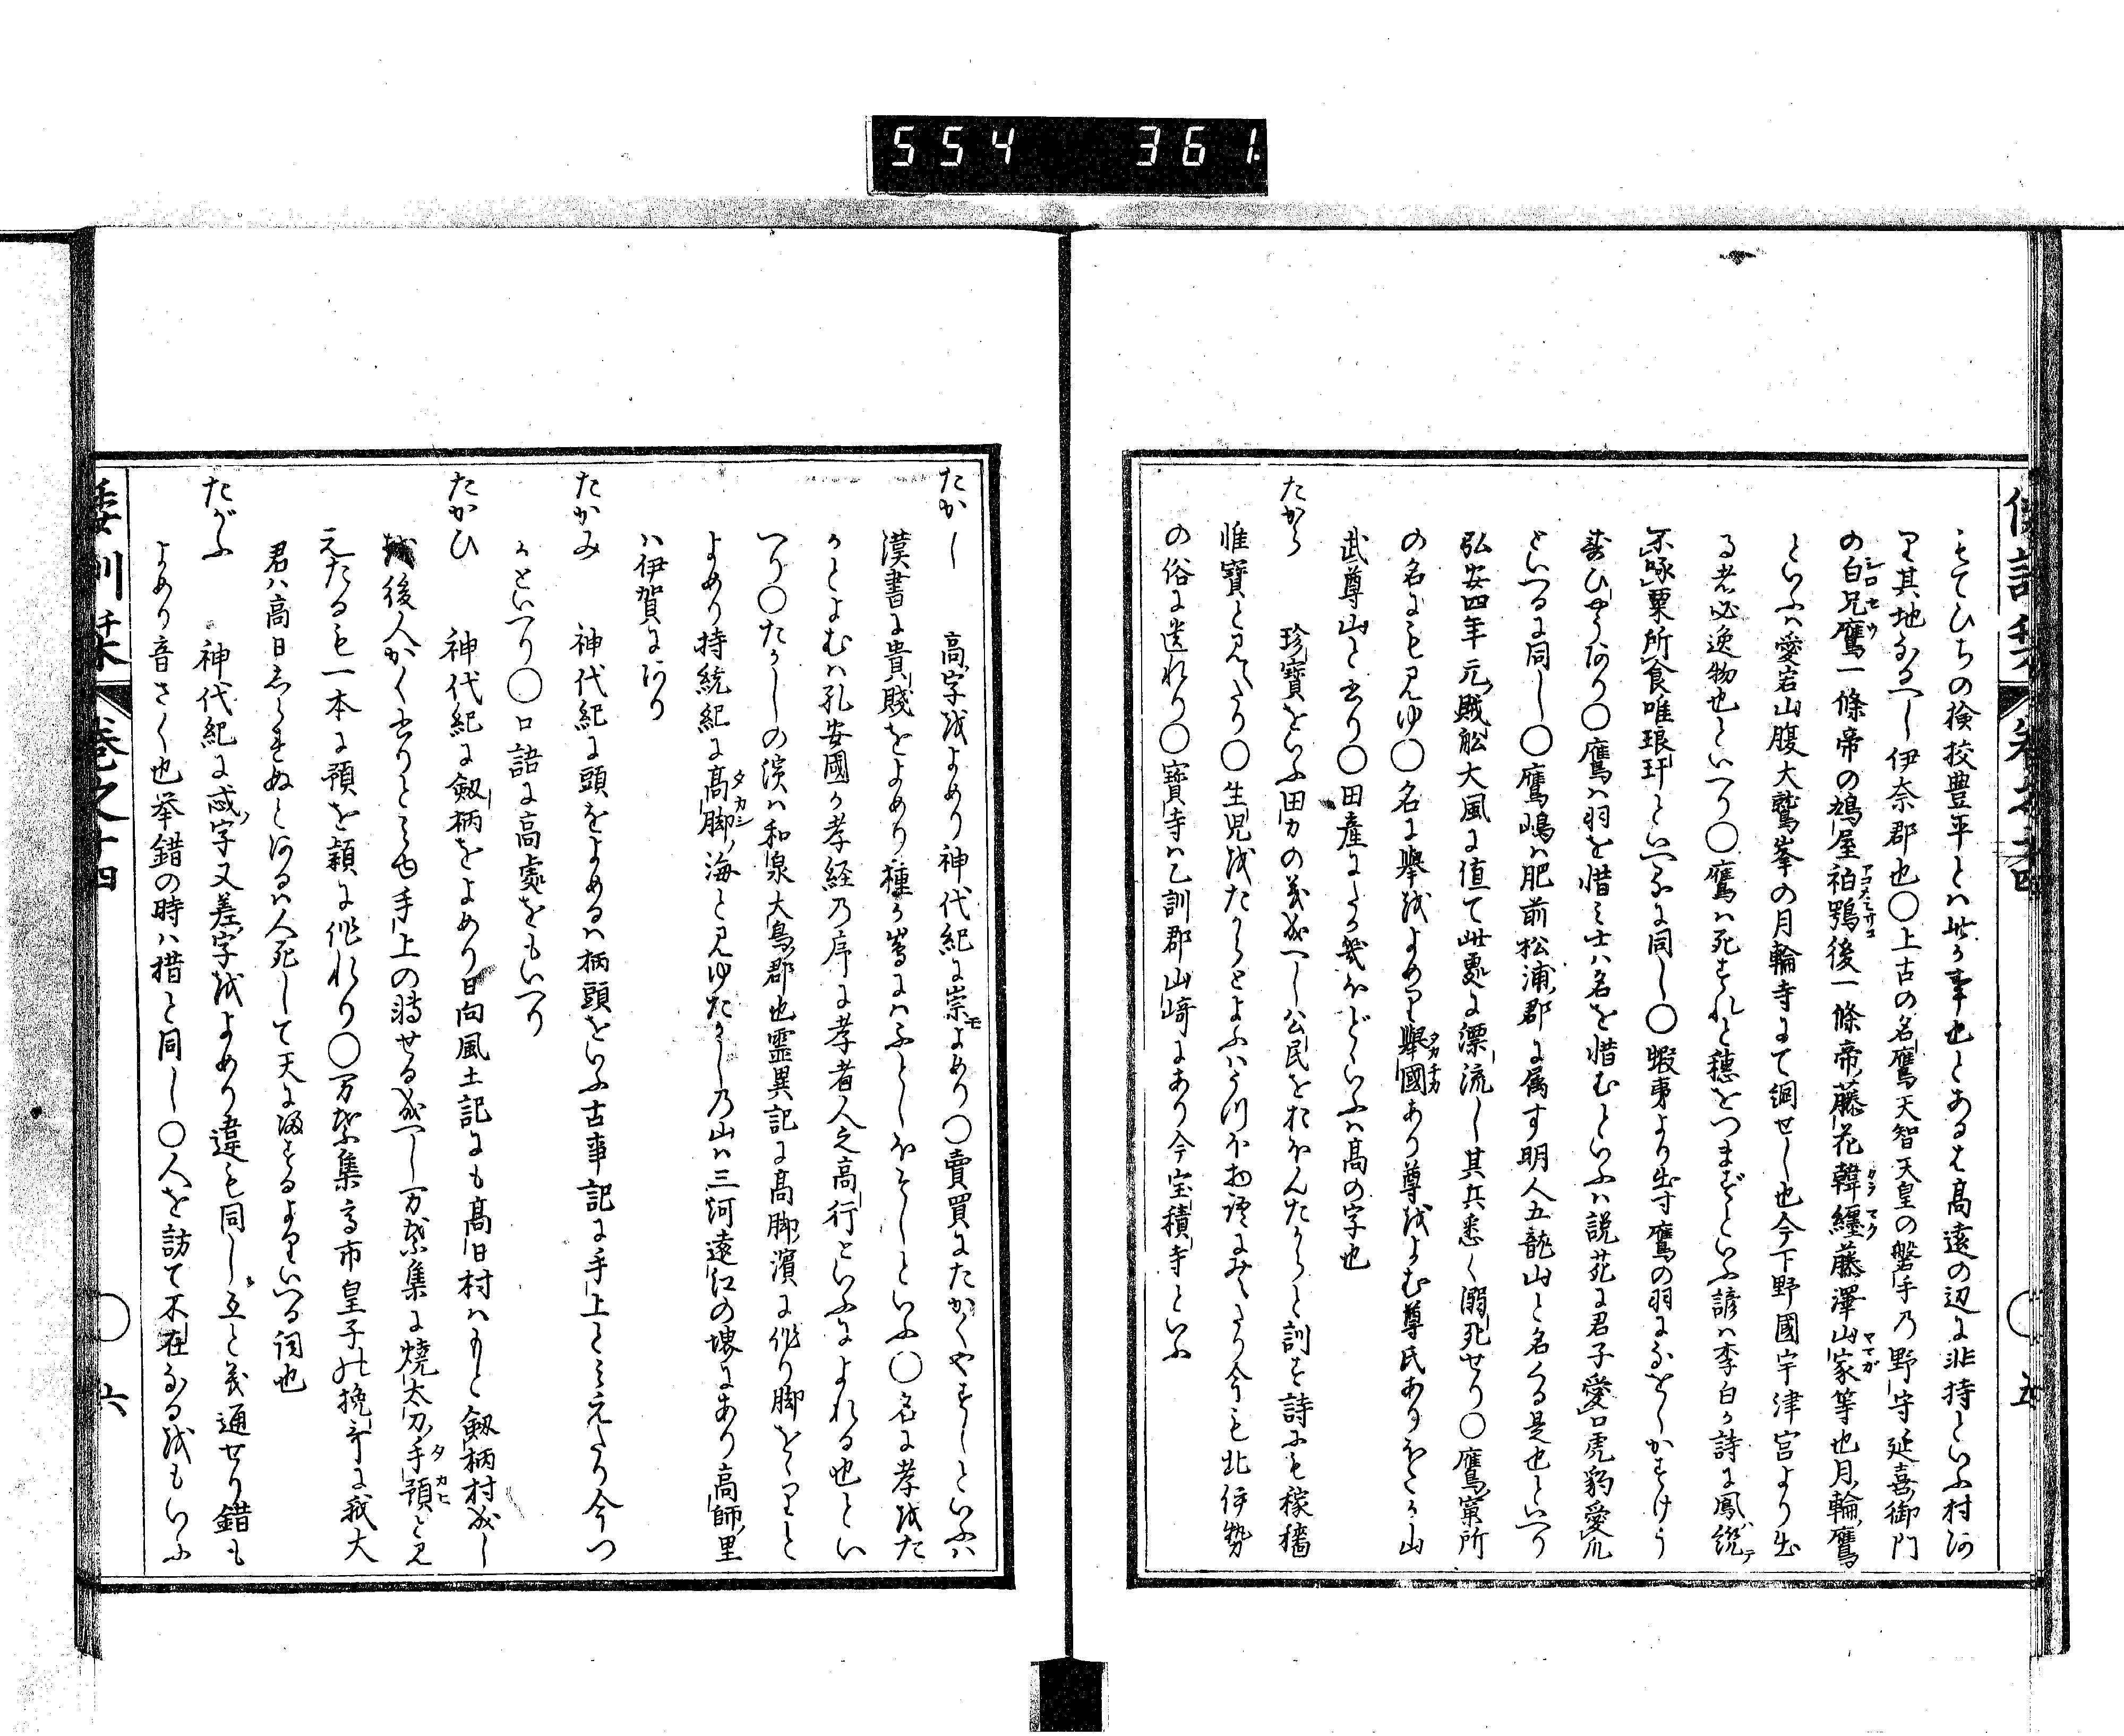 554 361.
もてひちの検校豊平とハ此か事也とあるも高遠の辺に非持といふ村あ
り其地なるへし伊奈郡也〇上古の名鷹天智天皇の磐手乃野守延喜御門
の白兄鷹一條帝の鳩屋袙鶚後一條帝藤花韓纏藤澤山家等也月輪鷹
といふハ愛宕山腹大鷲峯の月輪寺にて調せし也今下野國宇津宮より出
る者必逸物也といへり〇鷹ハ死すれと穂をつまずといふ諺ハ李白か詩に鳳
不啄粟所食唯琅玕といへるに同し〇蝦夷より出す鷹の羽に
〇鷹ハ羽を惜ミ士ハ名を惜むといふハ説苑に君子愛口虎豹愛爪
といへるに同し〇鷹嶋ハ肥前松浦郡に属す明人五龍山と名くる是也といへり
弘安四年元賊舩大風に値て此處に漂流し其兵悉く溺死せり〇鷹窠所
の名にも見ゆ〇名に擧をよめり擧國あり尊をよむ尊氏あり山
武尊山と書り〇田産にたか幾ほどといふハ高の字也
たから 珍寶をいふ田力の義成へし公民をおほんたからと訓す詩にも稼穡
惟寶と見えたり〇生児をたからとよふハうつほ物語にみえたり今も北伊勢
の俗に遺れり〇寶寺ハ乙訓郡山﨑にあり今宝積寺といふ
五
たかし 高字をよめり神代紀に崇もよめり〇賣買にたかくやすしといふハ
漢書に貴賤をよめり種か嶌にハふとしほそしといふ〇名に孝をた
かとよむハ孔安國か孝経乃序に孝者人之高行といふによれる也とい
へり〇たかしの濱ハ和泉大鳥郡也霊異記に高脚濱に作り脚をしと
よめり持統紀に高脚海と見ゆたかし乃山ハ三河遠江の堺にあり高師里
ハ伊賀にあり
たかみ 神代紀に頭をよめるハ柄頭をいふ古事記に手上とみえたり今つ
かといへり〇口語に高處をもいへり
たかひ 神代紀に劔柄をよめり日向風土記にも高日村ハもと劔柄村成し
後人かく書りとみゆ手上の轉せる成へし万葉集に燒太刀手預と見
えたるも一本に預を穎に作れり〇万葉集高市皇子の挽哥に我大
君ハ高日しらしぬとあるハ人死して天に帰するよりいふ詞也
たがふ 神代紀に忒字又差字をよめり違も同し互と義通せり錯も
よめり音さく也挙錯の時ハ措と同し〇人を訪て不在なるをもいふ
倭訓栞 巻之十四 六